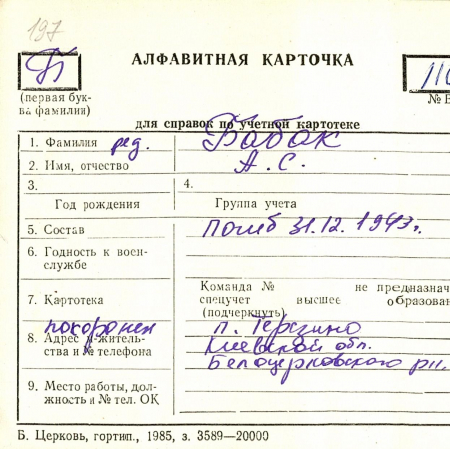 197
Б
АЛФАВИТНАЯ КАРТОЧКА
110
(первая бук-
ва фамилии)
№ В
для справок по учетной картотеке
1. Фамилия ряд. Бабак
2. Имя, отчество А. С.
3. 4.
Год рождения Группа учета
5. Состав Погиб 31.12.1943г.
6. Годность к воен-
службе
Команда № не предназнач
7. Картотека спецучет высшее образова
(подчеркнуть)
похоронен п. Терезино
8. Адрес житель- Киевской обл.
ства и № телефона Белоцерковского рн.
9. Место работы, дол-
жность и № тел. ОК
Б. Церковь, гортип., 1985, з. 3589—20000